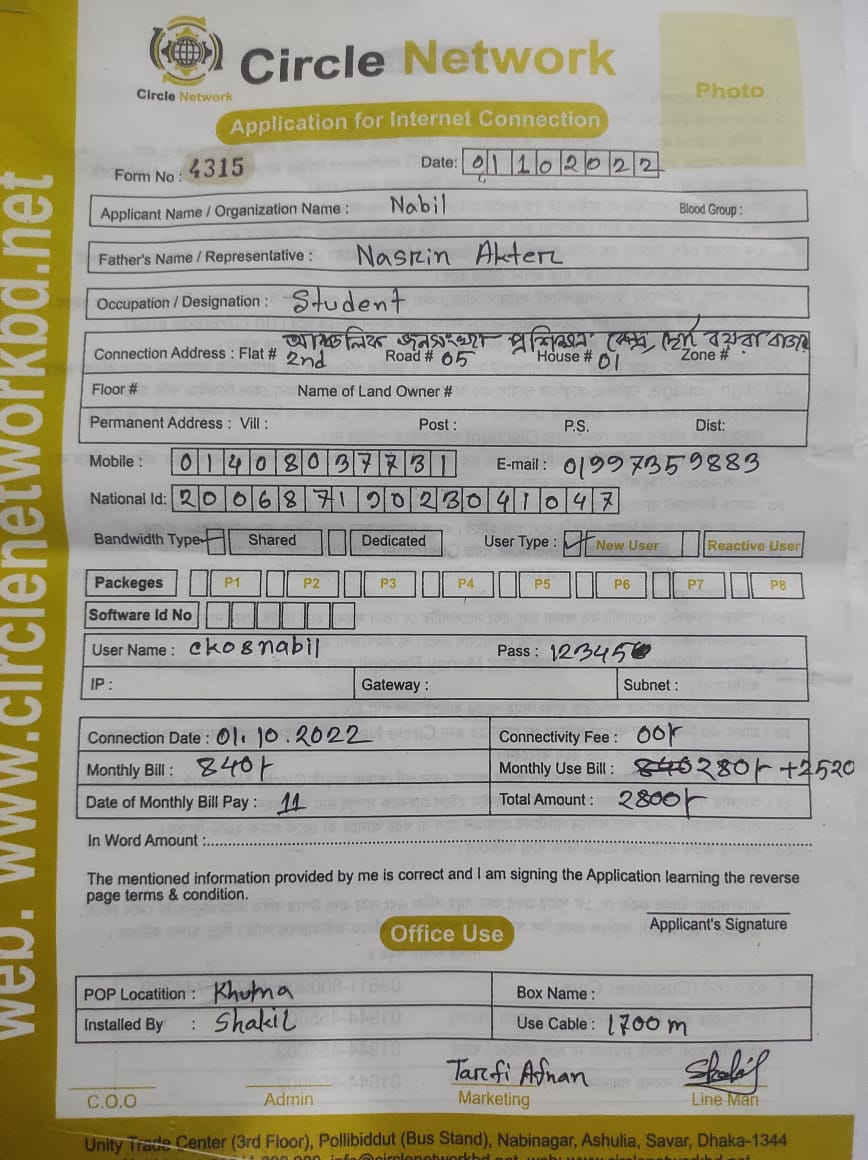 Circle Network
Circle Network
Photo
Application for Internet Connection
Form No : 4315
Date: 01102022
Applicant Name / Organization Name : Nabil Blood Group :
Father's Name / Representative : Nasrin Akter
Occupation / Designation : Student
আঞ্চলিক জনসংখ্যা প্রশিক্ষণ কেন্দ্র, বয়রা বাজার
Connection Address : Flat # 2nd Road # 05 House # 01 Zone #
Floor # Name of Land Owner #
Permanent Address : Vill : Post : P.S. Dist:
Mobile : 01408037731 E-mail : 01997359883
National Id: 20068719023041047
Bandwidth Type Shared Dedicated User Type : New User Reactive User
Packeges P1 P2 P3 P4 P5 P6 P7 P8
Software Id No
User Name : ck08nabil Pass : 123456
IP : Gateway : Subnet :
Connection Date : 01.10.2022 Connectivity Fee : 00/-
Monthly Bill : 840/- Monthly Use Bill : 840 280/- +2520
Date of Monthly Bill Pay : 11 Total Amount : 2800/-
In Word Amount :
The mentioned information provided by me is correct and I am signing the Application learning the reverse
page terms & condition.
Applicant's Signature
Office Use
POP Locatition : Khulna Box Name :
Installed By : Shakil Use Cable : 1700 m
Tarfi Afnan Shakil
C.O.O Admin Marketing Line Man
Unity Trade Center (3rd Floor), Pollibiddut (Bus Stand), Nabinagar, Ashulia, Savar, Dhaka-1344
web. www.circlenetworkbd.net